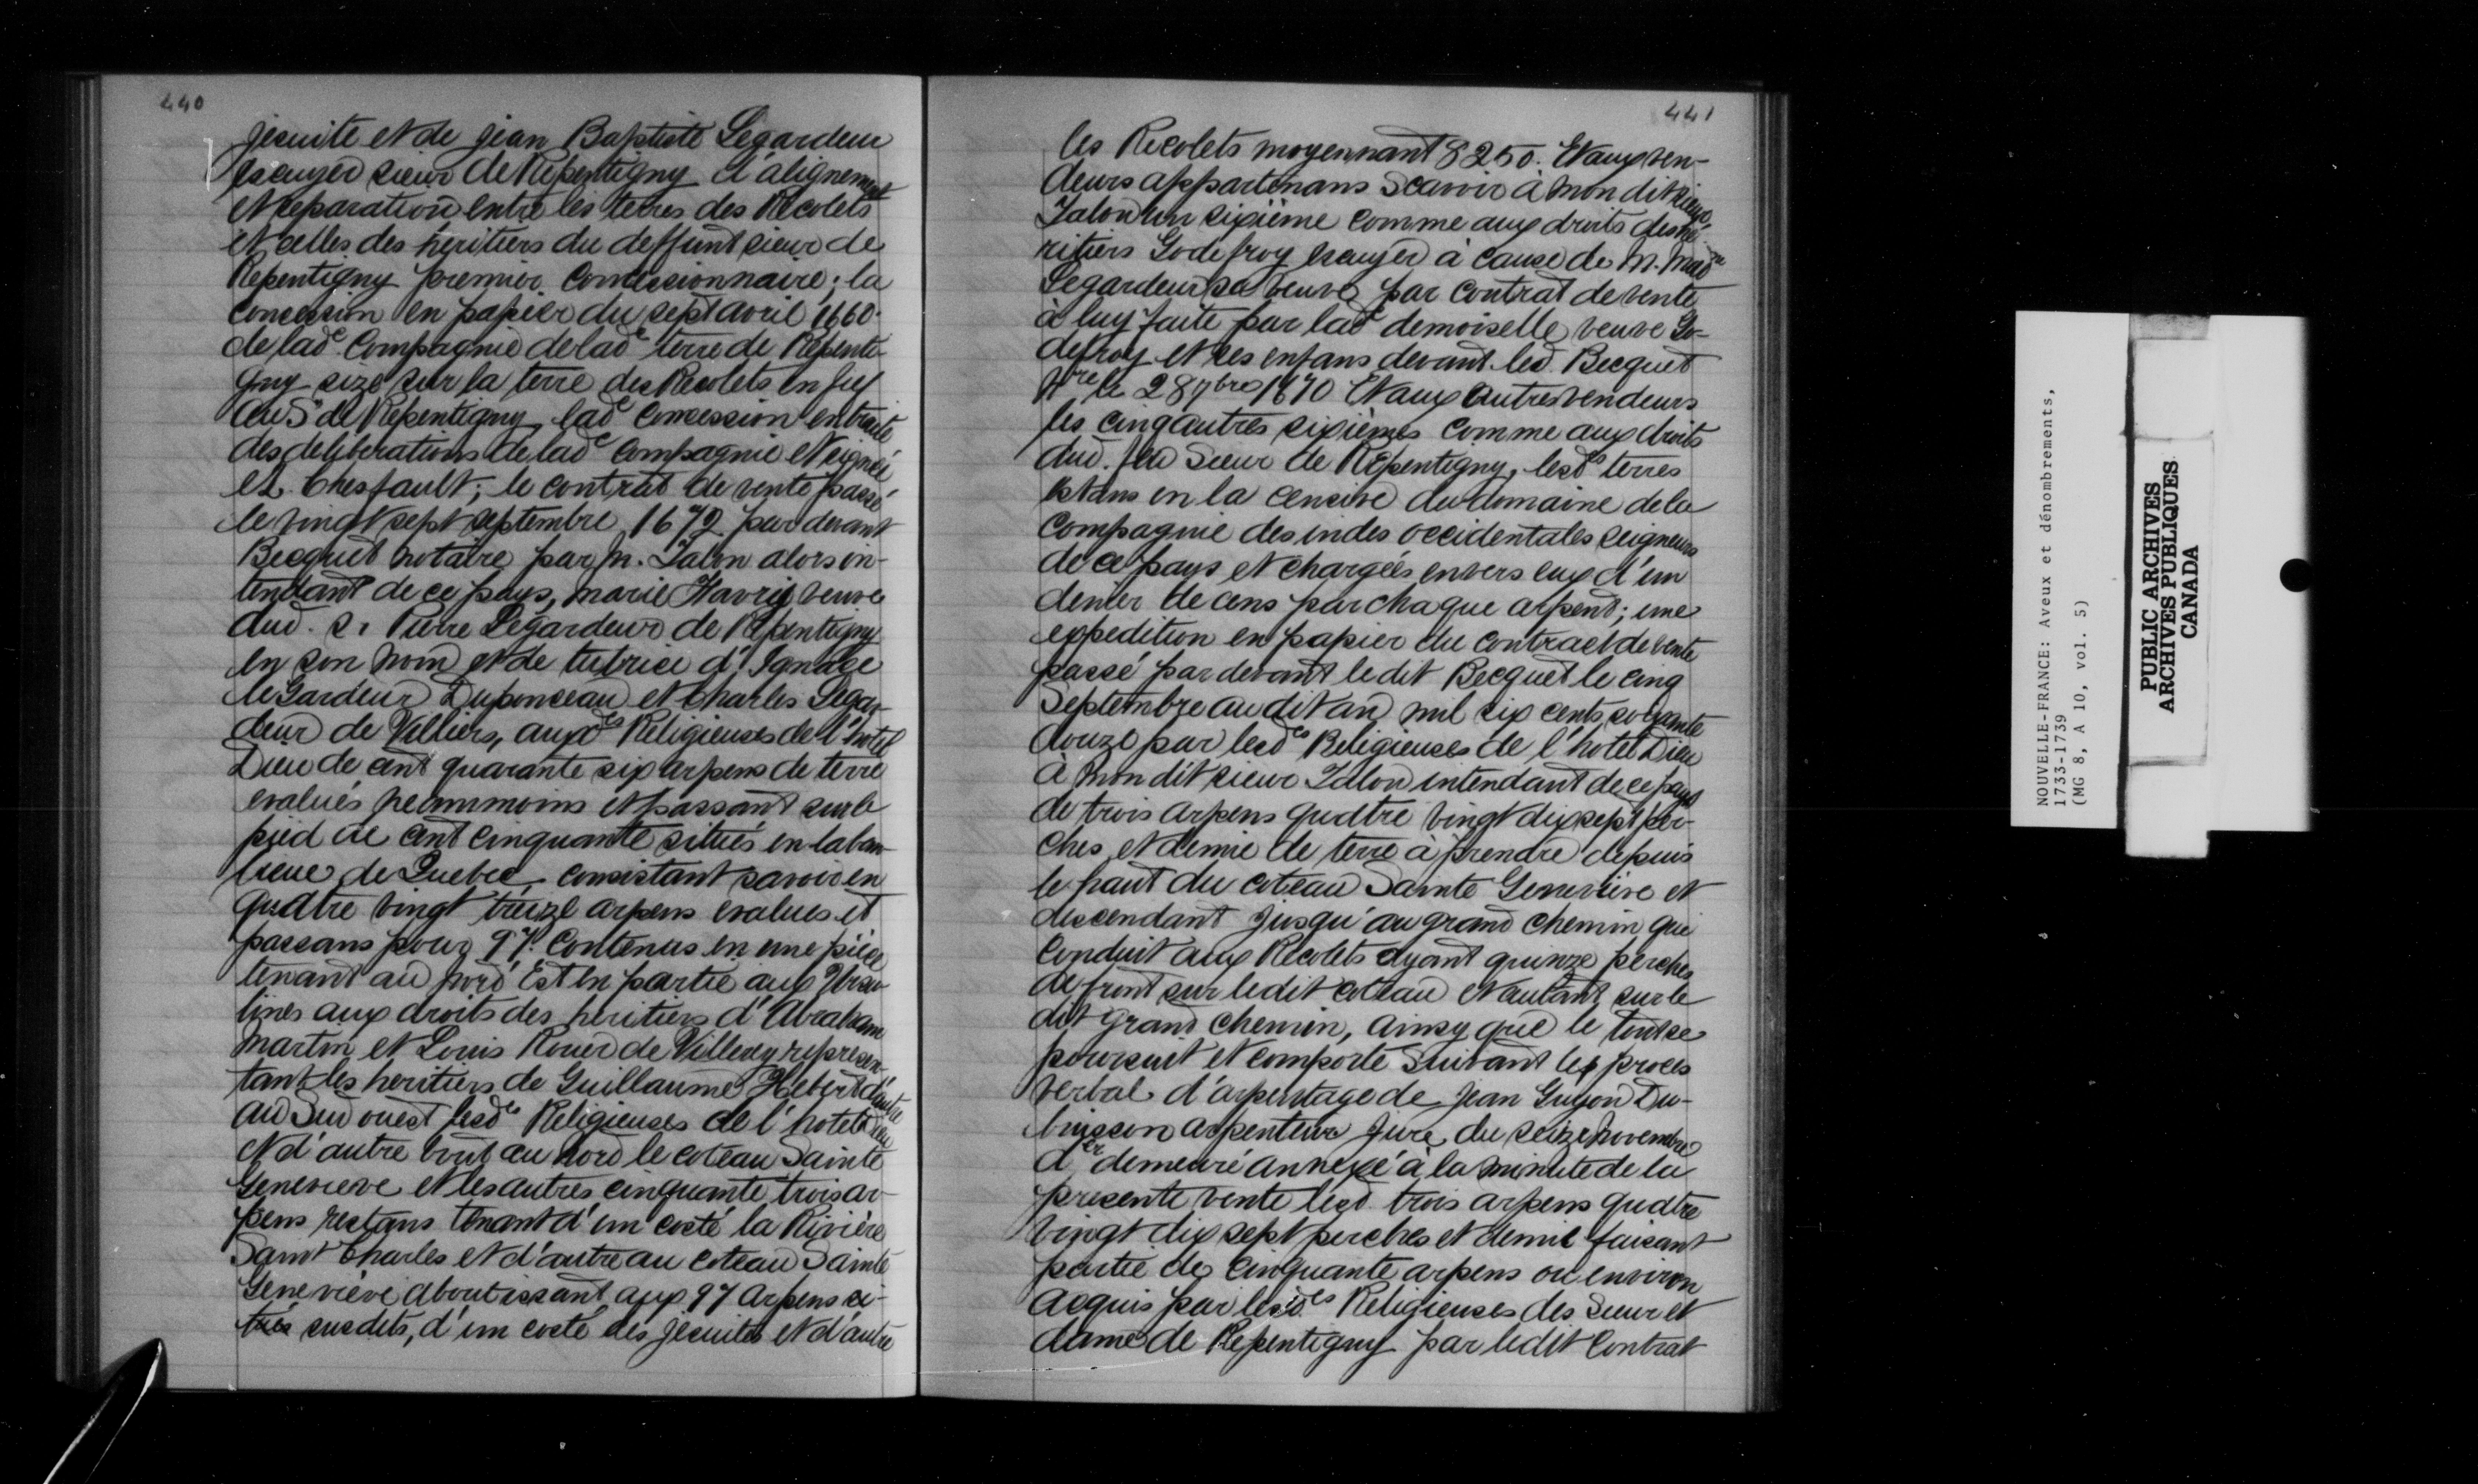 440
jesuite et de jean Baptiste Legardeur
escuyer sieur de Repentigny d'alignement
et separation entre les terres des Recolets
et celles des heritiers du deffunt sieur de
Repentigny premier concessionnaire; la
concession en papier du sept avril 1660.
de lade Compagnie de lade terre de Repenti-
gny size sur la terre des Recolets en fief
au Sr de Repentigny, lade concession entraite
des deliberations de lade Compagnie et signée
et. Chesfault; le contrat de vente passé
le vingt sept septembre 1672 par devant
Becquet notaire par M. Talon alors in-
tendant de ce pays, marie Favry veuve
dud. S. Pierre Legardeur de Repentigny
en son nom et de tutrice d'Ignace
le Gardeur Duponceau et Charles Legar-
deur de Villiers, auxdes Religieuses de l'hotel
Dieu de cent quarante six arpens de terre
evalués neammoins et passant sur le
pied de cent cinquante situés en la ban-
lieue de Quebec consistant savoir en
quatre vingt treize arpens evalues et
passans pour 97. contenus en une pièce
tenant au nord Est en partie aux Ursu-
lines aux droits des heritiers d'Abraham
Martin et Louis Rouer de Villeray represen-
tant les heritiers de Guillaume Hebert d'autre
au Sud ouest lesdes Religieuses de l'hotel Dieu
et d'autre bout au nord le coteau Sainte
Genevieve et les autres cinquante trois ar-
pens restans tenant d'un costé la Rivière
Saint Charles et d'autre au coteau Sainte
Geneviève aboutissant aux 97 arpens ci-
susdits, d'un costé des jesuites et d'autre
441
les Recolets moyennant 8250. Et aux ven-
deurs appartenans Scavoir à mon dit sieur
Talon un sixième comme aux droits des hé-
ritiers Godefroy escuyer à cause de M. Made
Legardeur sa veuve par contrat de vente
à luy faite par lade demoiselle veuve Go-
defroy et ses enfans devant led. Becquet
Nre le 28 7bre 1670 Et aux autres vendeurs
les cinq autres sixièmes comme aux droits
dud. feu Sieur de Repentigny, lesdes terres
estans en la censive du domaine de la
Compagnie des indes occidentales seigneurs
de ce pays et chargées envers eux d'un
denier de cens par chaque arpent; une
expedition en papier du contract de vente
passé par devant le dit Becquet le cinq
Septembre au dit an mil six cents soixante
douze par lesdes Religieuses de l'hotel Dieu
à mon dit sieur Talon intendant de ce pays
de trois arpens quatre vingt dix sept per-
ches et demie de terre à prendre depuis
le haut du coteau Sainte Geneviève et
descendant jusqu'au grand chemin qui
conduit aux Recolets ayant quinze perches
de front sur ledit coteau et autant sur le
dit grand chemin, ainsy que le tout se
poursuit et comporte suivant les proces
verbal d'arpentage de Jean Guyon Du-
buisson arpenteur juré du seize novembre
der demeuré annexé à la minute de la
presente vente lesd. trois arpens quatre
vingt dix sept perches et demie faisant
partie de cinquante arpens ou environ
acquis par lesdes Religieuses des Sieur et
dame de Repentigny par ledit contrat
NOUVELLE-FRANCE: Aveux et dénombrements,
1733-1739
(MG 8, A 10, vol. 5)
PUBLIC ARCHIVES
ARCHIVES PUBLIQUES
CANADA